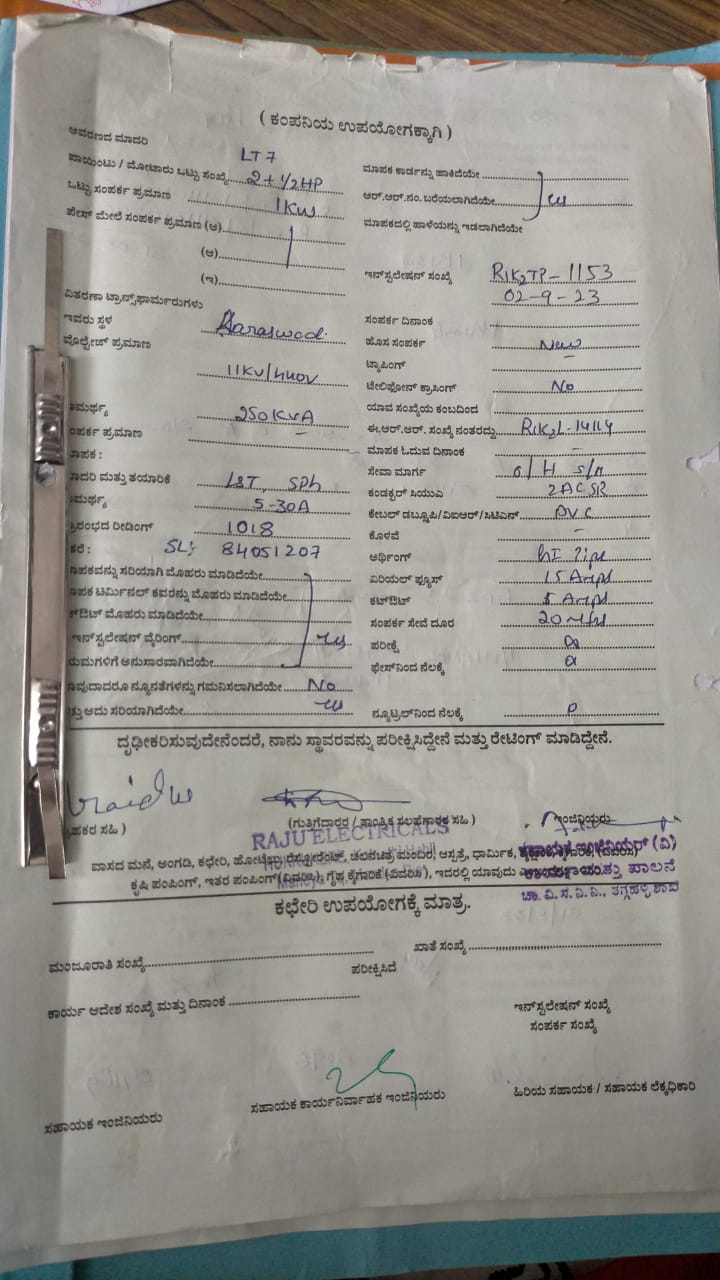 ( ಕಂಪನಿಯ ಉಪಯೋಗಕ್ಕಾಗಿ )
ಆವರಣದ ಮಾದರಿ
LT 7
ಪಾಯಿಂಟು / ಮೋಟಾರು ಒಟ್ಟು ಸಂಖ್ಯೆ 2 + 1/2 HP
ಒಟ್ಟು ಸಂಪರ್ಕ ಪ್ರಮಾಣ 1 KW
ಫೇಸ್ ಮೇಲೆ ಸಂಪರ್ಕ ಪ್ರಮಾಣ (ಅ)
(ಆ)
(ಇ)
ವಿತರಣಾ ಟ್ರಾನ್ಸ್‌ಫಾರ್ಮರುಗಳು
ಇವರು ಸ್ಥಳ
ವೊಲ್ಟೇಜ್ ಪ್ರಮಾಣ
11KV/440V
ಾಮರ್ಥ್ಯ 250 KVA
ಂಪರ್ಕ ಪ್ರಮಾಣ –
ಾಪಕ :
ಾದರಿ ಮತ್ತು ತಯಾರಿಕೆ L&T, SPh
ಾಮರ್ಥ್ಯ 5-30A
ರಂಭದ ರೀಡಿಂಗ್ 1018
ಕರೆ : SL: 84051207
ಾಪಕವನ್ನು ಸರಿಯಾಗಿ ಮೊಹರು ಮಾಡಿದೆಯೇ
ಾಪಕ ಟರ್ಮಿನಲ್ ಕವರನ್ನು ಮೊಹರು ಮಾಡಿದೆಯೇ
ಔಟ್ ಮೊಹರು ಮಾಡಿದೆಯೇ
ಇನ್‌ಸ್ಟಲೇಷನ್ ವೈರಿಂಗ್
ಯಮಗಳಿಗೆ ಅನುಸಾರವಾಗಿದೆಯೇ
ಾವುದಾದರೂ ನ್ಯೂನತೆಗಳನ್ನು ಗಮನಿಸಲಾಗಿದೆಯೇ No
ತ್ತು ಅದು ಸರಿಯಾಗಿದೆಯೇ
ಮಾಪಕ ಕಾರ್ಡನ್ನು ಹಾಕಿದೆಯೇ
ಆರ್.ಆರ್.ನಂ. ಬರೆಯಲಾಗಿದೆಯೇ
ಮಾಪಕದಲ್ಲಿ ಹಾಳೆಯನ್ನು ಇಡಲಾಗಿದೆಯೇ
ಇನ್‌ಸ್ಟಲೇಷನ್ ಸಂಖ್ಯೆ R1K2TP-1153
02-9-23
ಸಂಪರ್ಕ ದಿನಾಂಕ
ಹೊಸ ಸಂಪರ್ಕ New
ಟ್ಯಾಪಿಂಗ್ –
ಟೇಲಿಫೋನ್ ಕ್ರಾಸಿಂಗ್ No
ಯಾವ ಸಂಖ್ಯೆಯ ಕಂಬದಿಂದ
ಈ.ಆರ್.ಆರ್. ಸಂಖ್ಯೆ ನಂತರದ್ದು R1K2L-14114
ಮಾಪಕ ಓದುವ ದಿನಾಂಕ –
ಸೇವಾ ಮಾರ್ಗ O/H
ಕಂಡಕ್ಟರ್ ಸಿಯುಎ 2 ACSR
ಕೇಬಲ್ ಡಬ್ಲೂಪಿ/ವಿಐಆರ್/ಸಿಟಿಎಸ್ PVC
ಕೊಳವೆ –
ಅರ್ಥಿಂಗ್ GI Pipe
ಏರಿಯಲ್ ಫ್ಯೂಸ್ 15 Amps
ಕಟ್‌ಔಟ್ 5 Amps
ಸಂಪರ್ಕ ಸೇವೆ ದೂರ 20 Mtrs
ಪರೀಕ್ಷೆ
ಫೇಸ್‌ನಿಂದ ನೆಲಕ್ಕೆ
ನ್ಯೂಟ್ರಲ್‌ನಿಂದ ನೆಲಕ್ಕೆ
ದೃಢೀಕರಿಸುವುದೇನೆಂದರೆ, ನಾನು ಸ್ಥಾವರವನ್ನು ಪರೀಕ್ಷಿಸಿದ್ದೇನೆ ಮತ್ತು ರೇಟಿಂಗ್ ಮಾಡಿದ್ದೇನೆ.
ಹಕರ ಸಹಿ )
(ಗುತ್ತಿಗೆದಾರರ / ತಾಂತ್ರಿಕ ಸಲಹೆಗಾರಕ ಸಹಿ )
ಇಂಜಿನಿಯರು
RAJU ELECTRICALS
ಸಹಾಯಕ ಇಂಜಿನಿಯರ್ (ವಿ)
ವಾಸದ ಮನೆ, ಅಂಗಡಿ, ಕಛೇರಿ, ಹೋಟೆಲು, ರೆಸ್ಟೋರೆಂಟ್, ಚಲನಚಿತ್ರ ಮಂದಿರ, ಆಸ್ಪತ್ರೆ, ಧಾರ್ಮಿಕ,
ಕೃಷಿ ಪಂಪಿಂಗ್, ಇತರ ಪಂಪಿಂಗ್ (ವಿವರಿಸಿ), ಗೃಹ ಕೈಗಾರಿಕೆ (ವಿವರಿಸಿ), ಇದರಲ್ಲಿ ಯಾವುದು
ಮತ್ತು ಪಾಲನೆ
ಚಾ. ವಿ. ಸ. ನಿ. ನಿ.,
ಕಛೇರಿ ಉಪಯೋಗಕ್ಕೆ ಮಾತ್ರ.
ಮಂಜೂರಾತಿ ಸಂಖ್ಯೆ
ಖಾತೆ ಸಂಖ್ಯೆ
ಪರೀಕ್ಷಿಸಿದೆ
ಕಾರ್ಯ ಆದೇಶ ಸಂಖ್ಯೆ ಮತ್ತು ದಿನಾಂಕ
ಇನ್‌ಸ್ಟಲೇಷನ್ ಸಂಖ್ಯೆ
ಸಂಪರ್ಕ ಸಂಖ್ಯೆ
ಸಹಾಯಕ ಇಂಜಿನಿಯರು
ಸಹಾಯಕ ಕಾರ್ಯನಿರ್ವಾಹಕ ಇಂಜಿನಿಯರು
ಹಿರಿಯ ಸಹಾಯಕ / ಸಹಾಯಕ ಲೆಕ್ಕಧಿಕಾರಿ